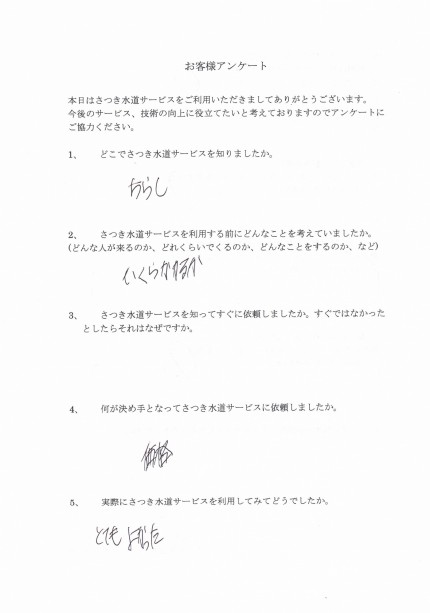 お客様アンケート
本日はさつき水道サービスをご利用いただきましてありがとうございます。
今後のサービス、技術の向上に役立てたいと考えておりますのでアンケートに
ご協力ください。
1、 どこでさつき水道サービスを知りましたか。
ちらし
2、 さつき水道サービスを利用する前にどんなことを考えていましたか。
(どんな人が来るのか、どれくらいでくるのか、どんなことをするのか、など)
いくらかかるか
3、 さつき水道サービスを知ってすぐに依頼しましたか。すぐではなかった
としたらそれはなぜですか。
4、 何が決め手となってさつき水道サービスに依頼しましたか。
価格
5、 実際にさつき水道サービスを利用してみてどうでしたか。
とても よかった